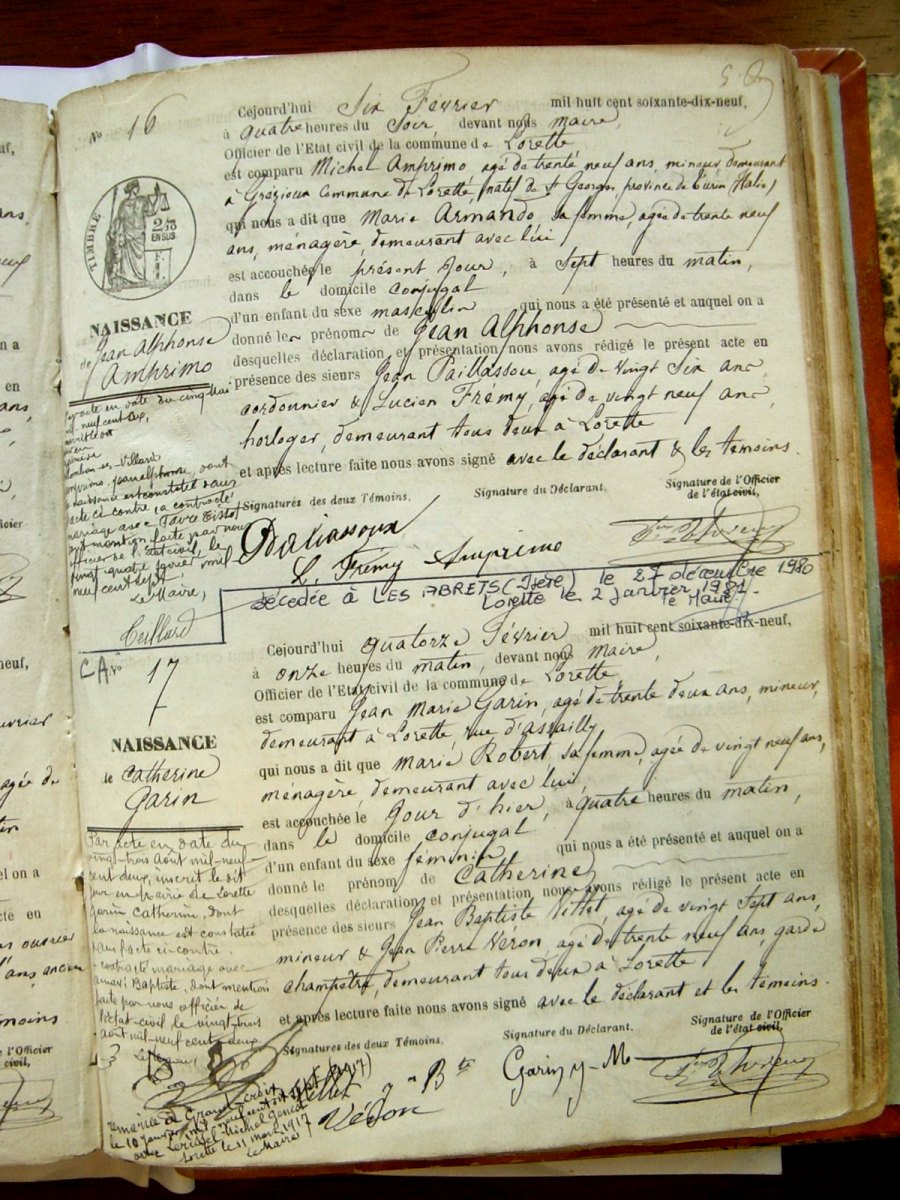 Nº 16
TIMBRE
EN SUS
NAISSANCE
de Jean Alphonse
Amprimo
mariage avec
faite par nous
officier de l'état civil, le
vingt-quatre janvier mil
neuf cent sept.
Le Maire,
Cejourd'hui Six Février mil huit cent soixante-dix-neuf,
à quatre heures du Soir, devant nous maire,
Officier de l'Etat civil de la commune de Lorette
est comparu Michel Amprimo agé de trente neuf ans, mineur demeurant
à Grézieux Commune de Lorette, natif de St Georges, province de Turin Italie,
qui nous a dit que Marie Armando, sa femme, agée de trente neuf
ans, ménagère, demeurant avec lui
est accouchée le présent Jour, à Sept heures du matin,
dans le domicile conjugal
d'un enfant du sexe masculin qui nous a été présenté et auquel on a
donné le prénom de Jean Alphonse
desquelles déclaration et présentation nous avons rédigé le présent acte en
présence des sieurs Jean Paillassou, agé de vingt Six ans
cordonnier & Lucien Frémy, agé de vingt neuf ans,
horloger, demeurant tous deux à Lorette
et après lecture faite nous avons signé avec le déclarant & les témoins.
Signatures des deux Témoins,
Signature du Déclarant,
Signature de l'Officier
de l'état civil,
L. Frémy
Amprimo
décédée à LES ABRETS (Isère) le 27 décembre 1980
Lorette le 2 janvier 1981
le Maire
CA
Nº 17
NAISSANCE
de Catherine
Garin
Par acte en date du
vingt-trois Août mil-neuf-
cent deux, inscrit le dit
jour en mairie de Lorette
Garin Catherine, dont
la naissance est constatée
par l'acte ci-contre,
a contracté mariage avec
Baptiste, dont mention
faite par nous officier de
l'état-civil le vingt-trois
Août mil-neuf-cent-deux
Cejourd'hui quatorze Février mil huit cent soixante-dix-neuf,
à onze heures du matin, devant nous maire,
Officier de l'Etat civil de la commune de Lorette,
est comparu Jean Marie Garin, agé de trente deux ans, mineur,
demeurant à Lorette, rue d'assailly
qui nous a dit que Marie Robert, sa femme, agée de vingt neuf ans,
ménagère, demeurant avec lui
est accouchée le Jour d'hier, à quatre heures du matin,
dans le domicile conjugal
d'un enfant du sexe féminin qui nous a été présenté et auquel on a
donné le prénom de Catherine
desquelles déclaration et présentation nous avons rédigé le présent acte en
présence des sieurs Jean Baptiste Villet, agé de vingt Sept ans,
mineur & Jean Pierre Véron, agé de trente neuf ans, garde
champêtre, demeurant tous deux à Lorette
et après lecture faite nous avons signé avec le déclarant et les témoins.
Signatures des deux Témoins,
Signature du Déclarant,
Signature de l'Officier
de l'état civil,
Garin J-M
Véron
remariée à Grand'Croix
le 10 janvier mil neuf cent dix sept (1917)
avec Michel
Lorette le 11 mars 1917
Le Maire